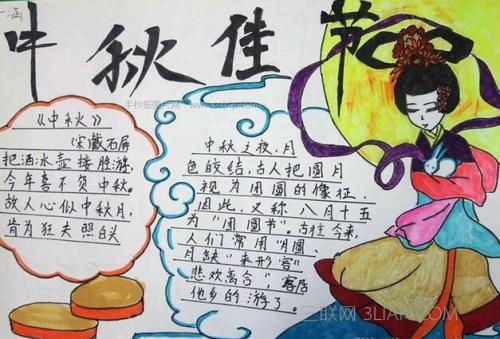 中秋佳节
《中秋》
宋戴石屏
把酒冰壶接胜游，
今年喜不负中秋。
故人心似中秋月，
肯为狂夫照白头
中秋之夜，月
色皎结，古人把圆月
视为团圆的像征．
因此，又称八月十五
为“团圆节”，古往今来，
人们常用“月圆
月缺”来形容“
悲欢离合”，客居
他乡的游了。
三联网 3LIAN.COM